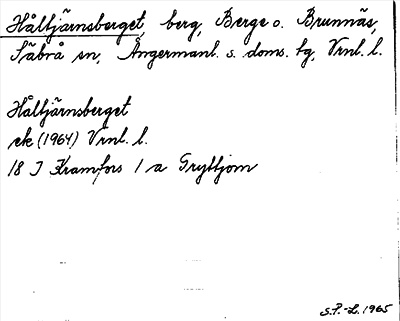 Håltjärnsberget, berg, Berge o. Brunnäs,
Säbrå sn, Ångermanl. s. doms. tg, Vrnl. l.
Håltjärnsberget
ek (1964) Vrnl. l.
18 J Kramfors 1 a Gryttjom
S.P.-L. 1965